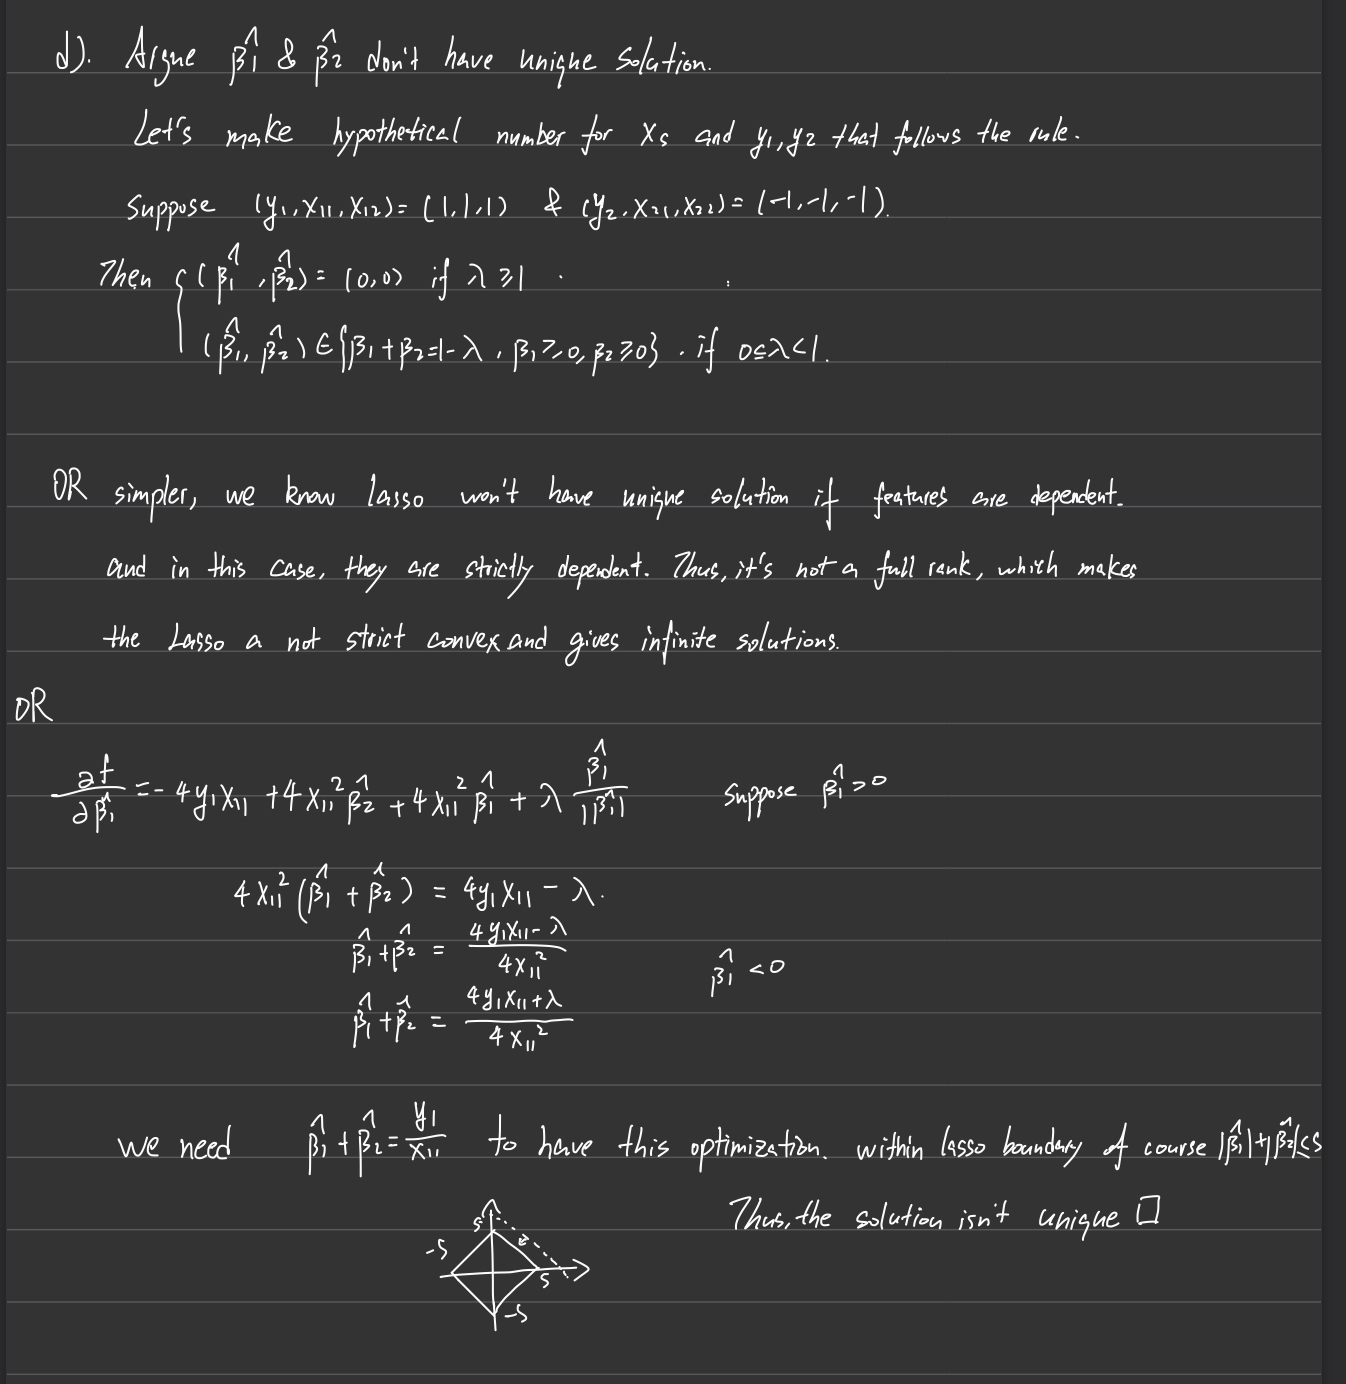 d). Argue β̂₁ & β̂₂ don't have unique solution.
Let's make hypothetical number for Xs and y₁,y₂ that follows the rule.
Suppose (y₁,X₁₁,X₁₂)=(1,1,1) & (y₂,X₂₁,X₂₂)=(-1,-1,-1).
Then { (β̂₁,β̂₂)=(0,0) if λ≥1
(β̂₁,β̂₂)∈{β₁+β₂=1-λ, β₁≥0, β₂≥0}. if 0≤λ<1.
OR simpler, we know lasso won't have unique solution if features are dependent.
and in this case, they are strictly dependent. Thus, it's not a full rank, which makes
the Lasso a not strict convex and gives infinite solutions.
OR
∂f/∂β̂₁ = -4y₁X₁₁ + 4X₁₁²β̂₂ + 4X₁₁²β̂₁ + λ β̂₁/|β̂₁| Suppose β̂₁>0
4X₁₁²(β̂₁+β̂₂) = 4y₁X₁₁ - λ.
β̂₁+β̂₂ = (4y₁X₁₁-λ)/4X₁₁²
β̂₁<0
β̂₁+β̂₂ = (4y₁X₁₁+λ)/4X₁₁²
we need β̂₁+β̂₂=y₁/X₁₁ to have this optimization. within lasso boundary of course |β̂₁|+|β̂₂|≤s
Thus, the solution isn't unique □
s
-s
s
-s